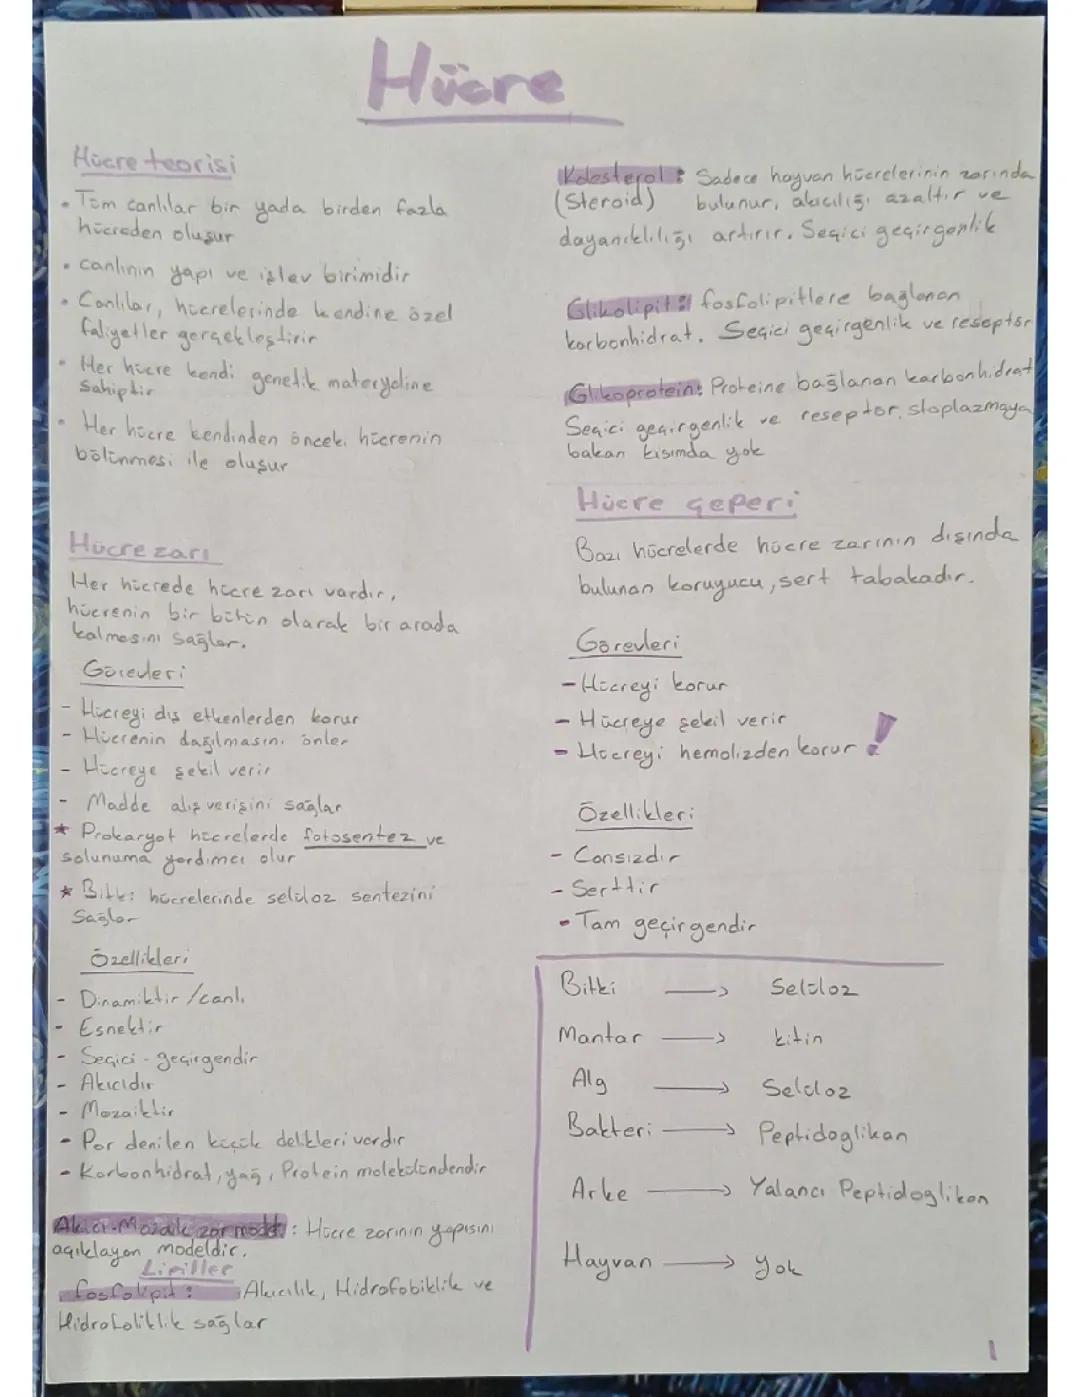 Hücre
Hücre teorisi
• Tüm canlılar bir yada birden fazla
hücreden oluşur
• canlının yapı ve işlev birimidir
• Canlılar, hücrelerinde kendine özel
faliyetler gerçekleştirir
• Her hücre kendi genetik materyaline
sahiptir
• Her hücre kendinden önceki hücrenin
bölünmesi ile oluşur
Hücre zarı
Her hücrede hücre zarı vardır,
hücrenin bir bütün olarak bir arada
kalmasını sağlar.
Görevleri
- Hücreyi dış etkenlerden korur
- Hücrenin dağılmasını önler
- Hücreye şekil verir
- Madde alış verişini sağlar
* Prokaryot hücrelerde fotosentez ve
solunuma yardımcı olur
* Bitki hücrelerinde selüloz sentezini
sağlar
Özellikleri
- Dinamiktir /canlı
- Esnektir
- Seçici-geçirgendir
- Akıcıdır
- Mozaiktir
- Por denilen küçük delikleri vardır
- Karbonhidrat, yağ, Protein molekülündendir
Akıcı-Mozaik zar model: Hücre zarının yapısını
açıklayan modeldir.
Lipitler
fosfolipit: Akıcılık, Hidrofobiklik ve
Hidrofoliklik sağlar
Kolesterol: Sadece hayvan hücrelerinin zarında
(Steroid) bulunur, akıcılığı azaltır ve
dayanıklılığı artırır. Seçici geçirgenlik
Glikolipit: fosfolipitlere bağlanan
karbonhidrat. Seçici geçirgenlik ve reseptör
Glikoprotein: Proteine bağlanan karbonhidrat
Seçici geçirgenlik ve reseptor, stoplazmaya
bakan kısımda yok
Hücre çeperi
Bazı hücrelerde hücre zarının dışında
bulunan koruyucu, sert tabakadır.
Görevleri
- Hücreyi korur
- Hücreye şekil verir
- Hücreyi hemolizden korur !
Özellikleri
- Cansızdır
- Serttir
- Tam geçirgendir
Bitki → Selüloz
Mantar → kitin
Alg → Selüloz
Bakteri → Peptidoglikan
Arke → Yalancı Peptidoglikan
Hayvan → yok
1